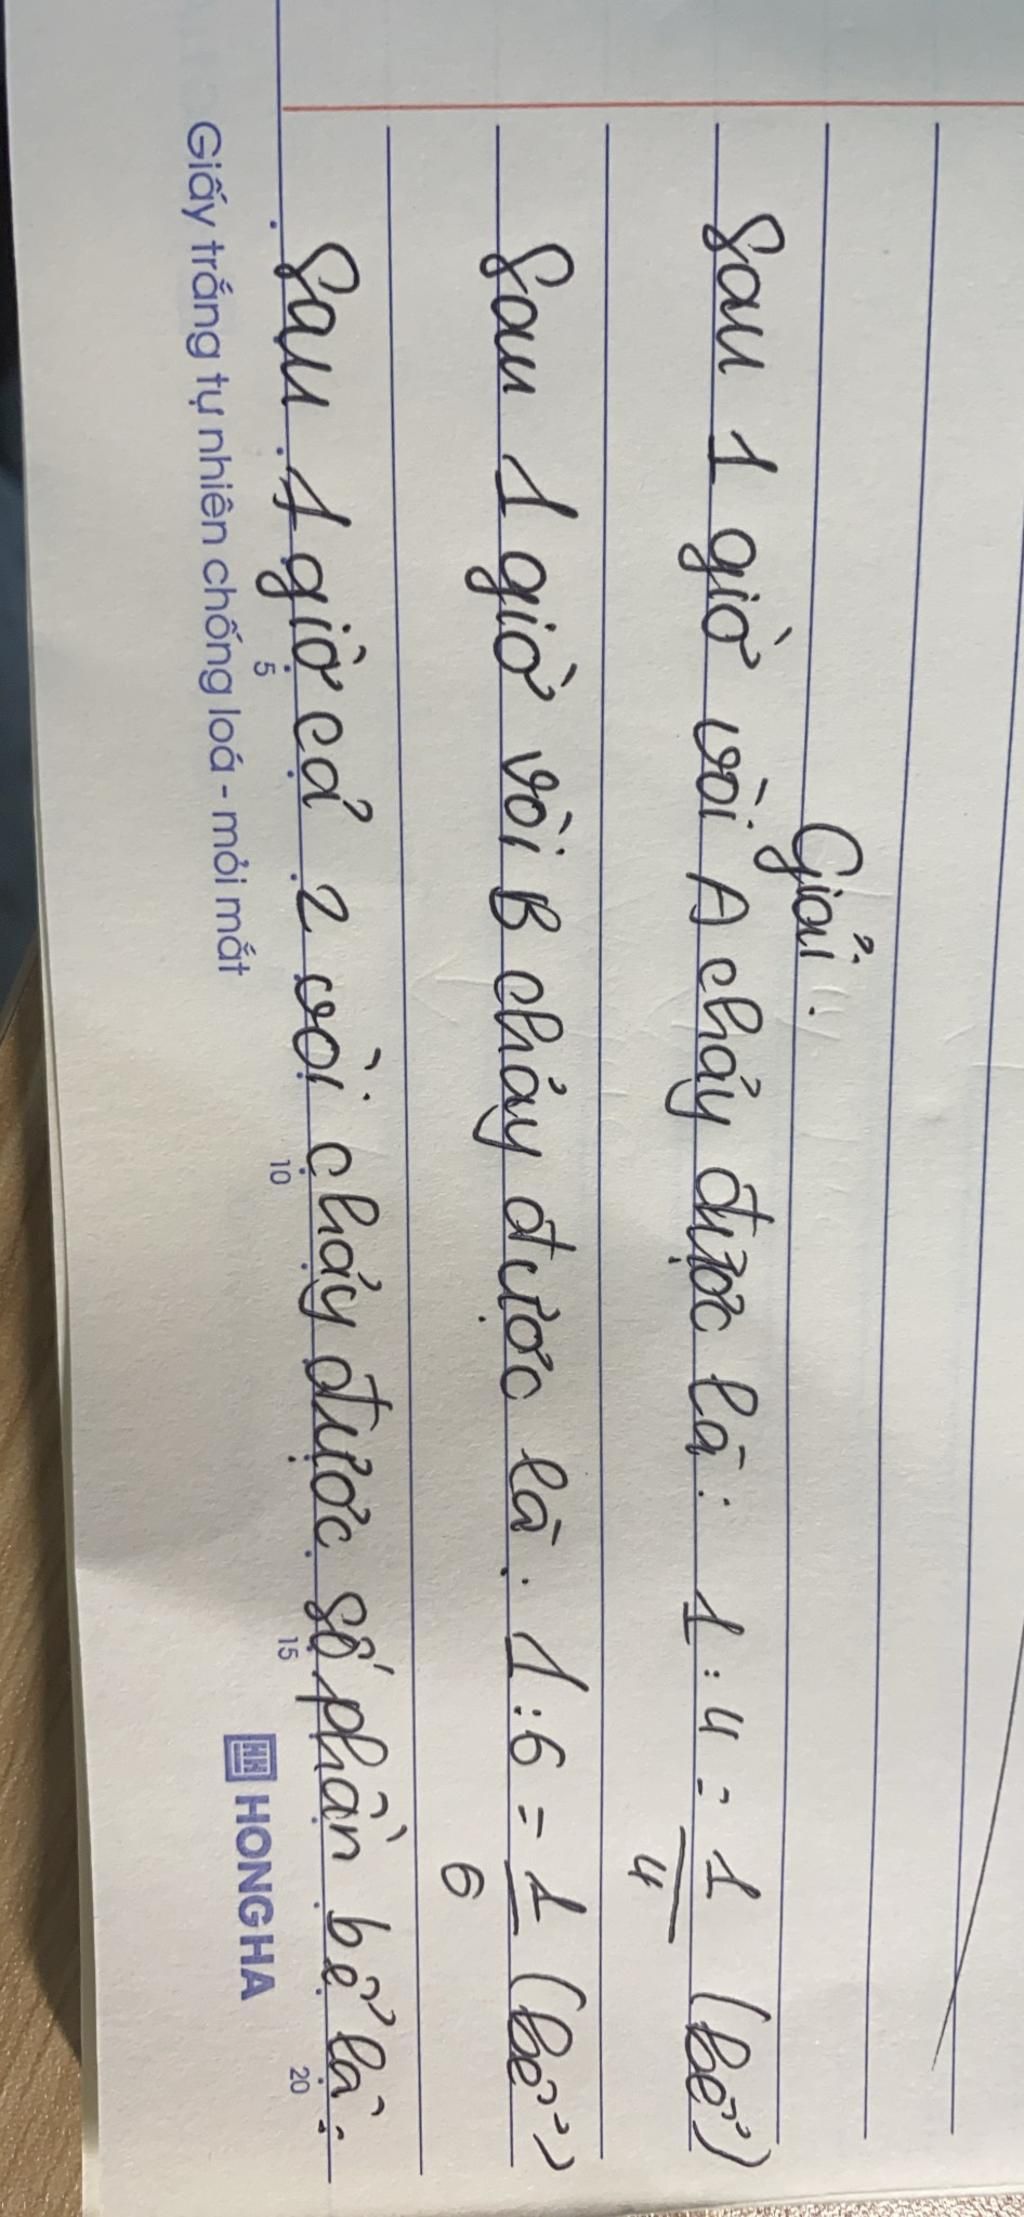 Giải:
Sau 1 giờ vòi A chảy được là: 1 : 4 = 1/4 (bể)
Sau 1 giờ vòi B chảy được là: 1 : 6 = 1/6 (bể)
Sau 1 giờ cả 2 vòi chảy được số phần bể là:
5 10 15 20
Giấy trắng tự nhiên chống loá - mỏi mắt HH HONG HA